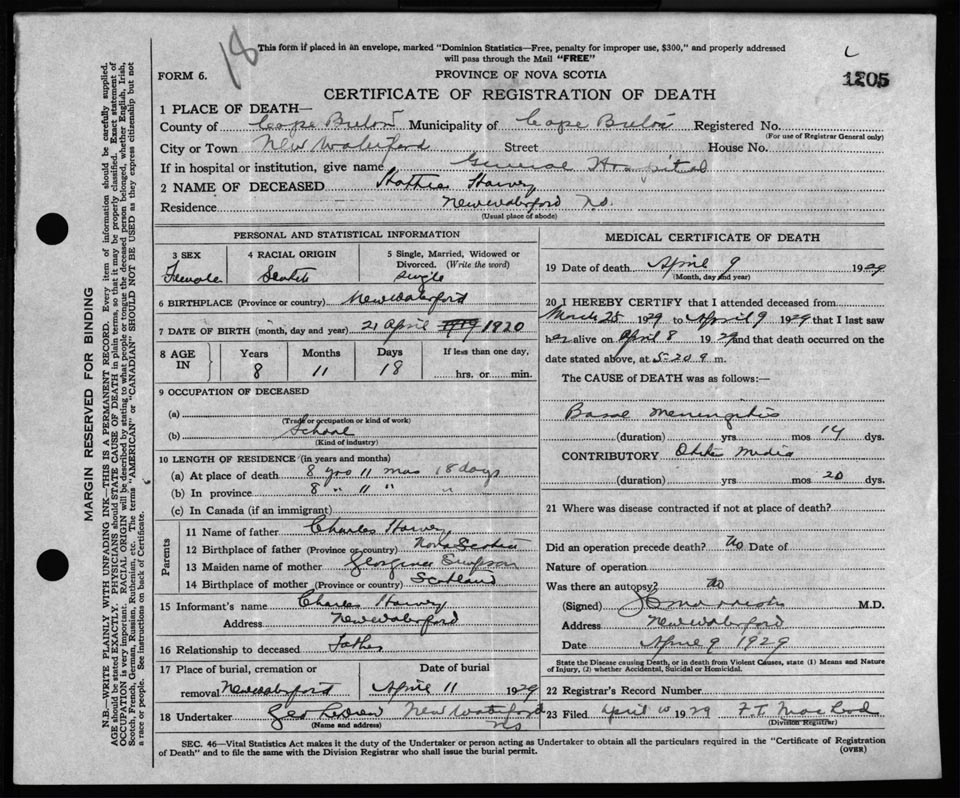 18
This form if placed in an envelope, marked "Dominion Statistics—Free, penalty for improper use, $300," and properly addressed
will pass through the Mail "FREE"
L
FORM 6.
PROVINCE OF NOVA SCOTIA
1205
CERTIFICATE OF REGISTRATION OF DEATH
1 PLACE OF DEATH—
County of Cape Breton Municipality of Cape Breton Registered No.
(For use of Registrar General only)
City or Town New Waterford Street House No.
If in hospital or institution, give name General Hospital
2 NAME OF DECEASED Harvey
Residence New Waterford N.S.
(Usual place of abode)
PERSONAL AND STATISTICAL INFORMATION
3 SEX 4 RACIAL ORIGIN 5 Single, Married, Widowed or
Divorced. (Write the word)
Female Scotch Single
6 BIRTHPLACE (Province or country) New Waterford
7 DATE OF BIRTH (month, day and year) 21 April 1919 1920
8 AGE IN Years Months Days If less than one day,
8 11 18 hrs. or min.
9 OCCUPATION OF DECEASED
(a)
(Trade or occupation or kind of work)
(b) School
(Kind of industry)
10 LENGTH OF RESIDENCE (in years and months)
(a) At place of death 8 yrs 11 mos 18 days
(b) In province 8 " 11 " "
(c) In Canada (if an immigrant)
Parents
11 Name of father Charles Harvey
12 Birthplace of father (Province or country) Nova Scotia
13 Maiden name of mother Georgina Simpson
14 Birthplace of mother (Province or country) Scotland
15 Informant's name Charles Harvey
Address New Waterford
16 Relationship to deceased Father
17 Place of burial, cremation or Date of burial
removal New Waterford April 11 1929
18 Undertaker Geo New Waterford
(Name and address) NS
MEDICAL CERTIFICATE OF DEATH
19 Date of death April 9 1929
(Month, day and year)
20 I HEREBY CERTIFY that I attended deceased from
March 25 1929 to April 9 1929 that I last saw
her alive on April 8 1929 and that death occurred on the
date stated above, at 5-20 m.
The CAUSE of DEATH was as follows:—
Basal Meningitis
(duration) yrs mos 14 dys.
CONTRIBUTORY Otitis Media
(duration) yrs. mos 20 dys.
21 Where was disease contracted if not at place of death?
Did an operation precede death? No Date of
Nature of operation
Was there an autopsy? No
(Signed) M.D.
Address New Waterford
Date April 9 1929
State the Disease causing Death, or in death from Violent Causes, state (1) Means and Nature
of Injury, (2) whether Accidental, Suicidal or Homicidal.
22 Registrar's Record Number
23 Filed April 10 1929 F.T. MacLeod
(Division Registrar)
SEC. 46—Vital Statistics Act makes it the duty of the Undertaker or person acting as Undertaker to obtain all the particulars required in the "Certificate of Registration
of Death" and to file the same with the Division Registrar who shall issue the burial permit.
(OVER)
MARGIN RESERVED FOR BINDING
N.B.—WRITE PLAINLY WITH UNFADING INK—THIS IS A PERMANENT RECORD. Every item of information should be carefully supplied.
AGE should be stated EXACTLY. PHYSICIANS should STATE CAUSE OF DEATH in plain terms, so that it may be properly classified. Exact statement of
OCCUPATION is very important. RACIAL ORIGIN will be described by stating to what people or tongue the deceased person belonged, whether English, Irish,
Scotch, French, German, Russian, Ruthenian, etc. The terms "AMERICAN" or "CANADIAN" SHOULD NOT BE USED as they express citizenship but not
a race or people. See instructions on back of Certificate.